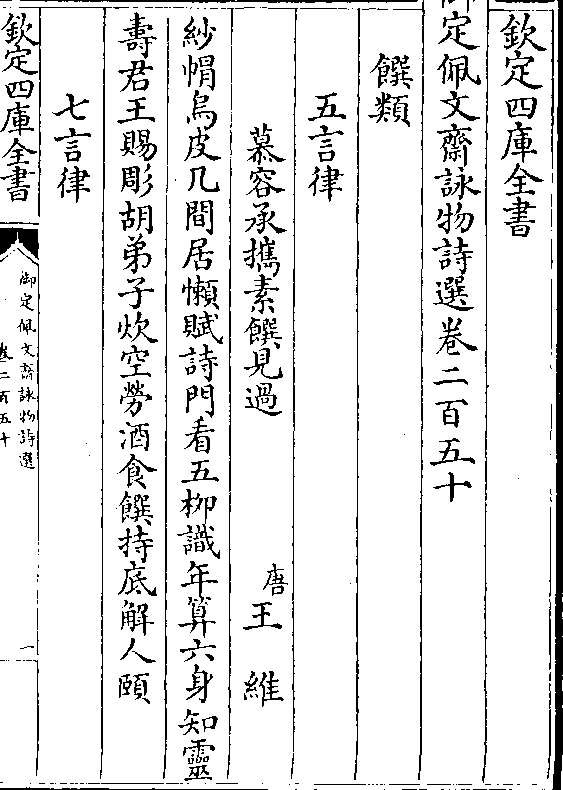 欽定四庫全書
御定佩文齋詠物詩選卷二百五十
饌類
五言律
慕容承攜素饌見過
唐王維
紗㡌烏皮几間居懶賦詩門看五栁識年算六身知靈
壽君王賜彫胡弟子炊空勞酒食饌持底解人頤
七言律
欽定四庫全書
御定佩文齋詠物詩選
卷二百五十
一